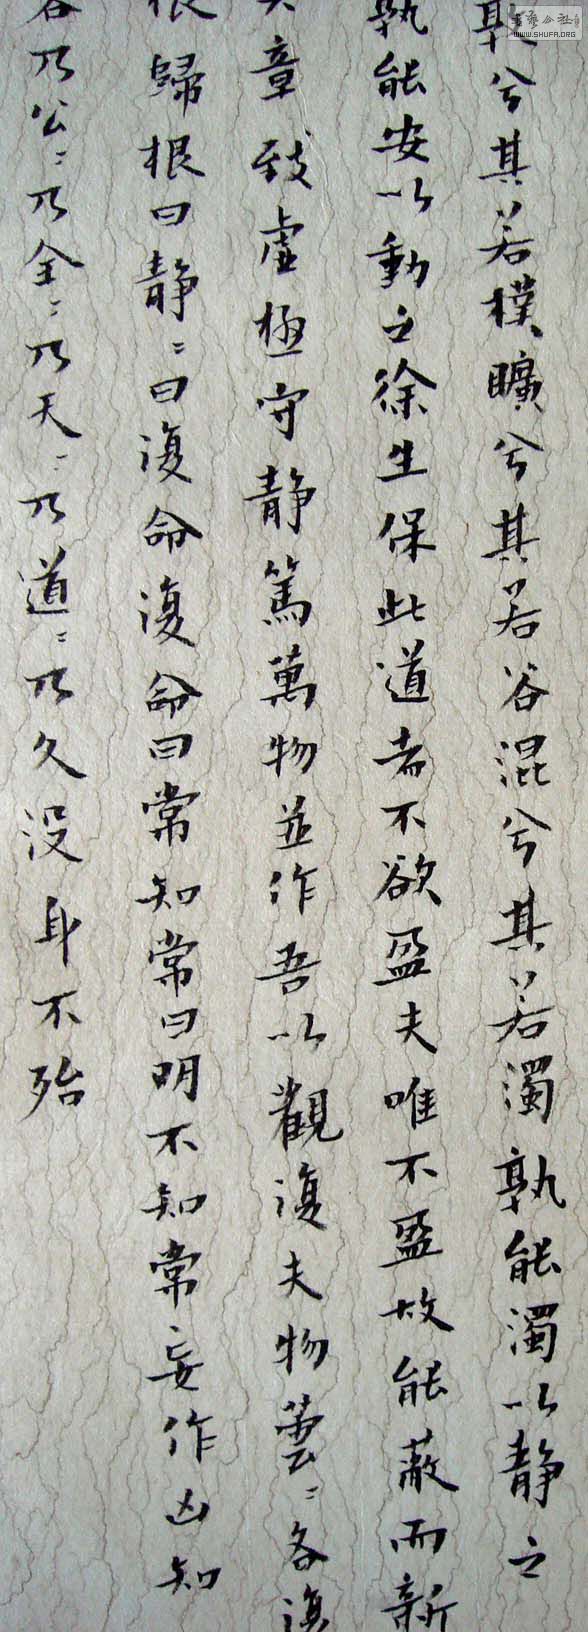 書藝公社
WWW.SHUFA.ORG
敦兮其若樸曠兮其若谷混兮其若濁孰能濁以静之
孰能安以動之徐生保此道者不欲盈夫唯不盈故能蔽而新
章致虛極守静篤萬物並作吾以觀復夫物蕓〻各復
根歸根曰静〻曰復命復命曰常知常曰明不知常妄作凶知
容乃公〻乃全〻乃天〻乃道〻乃久没身不殆